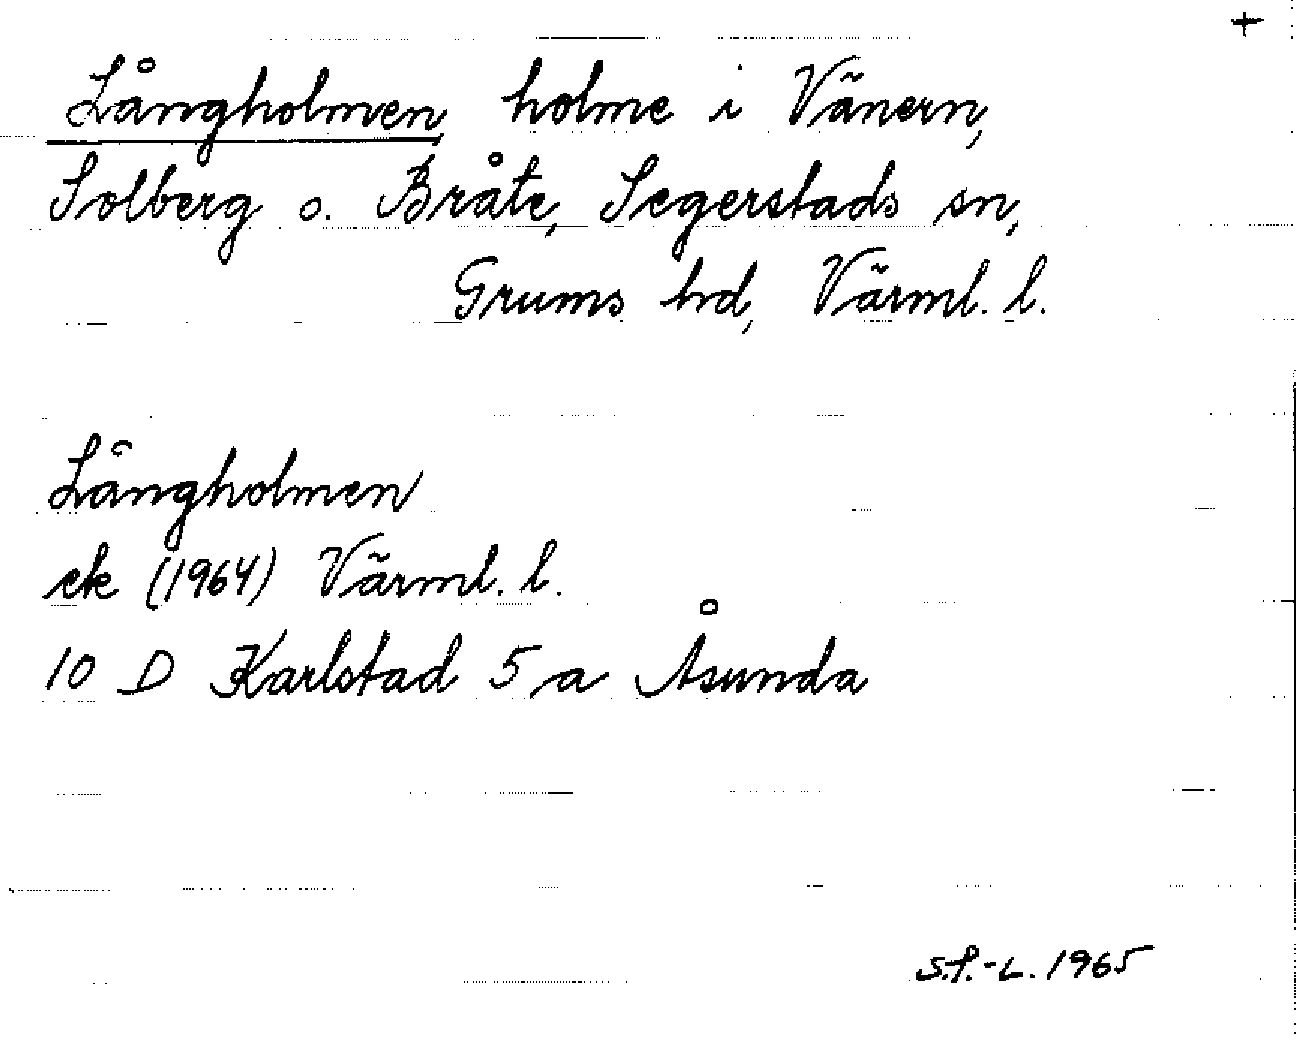 +
Långholmen, holme i Vänern,
Solberg o. Bråte, Segerstads sn,
Grums hd, Värml. l.
Långholmen
ek (1964) Värml. l.
10 D Karlstad 5 a Åsunda
S.f.-L. 1965